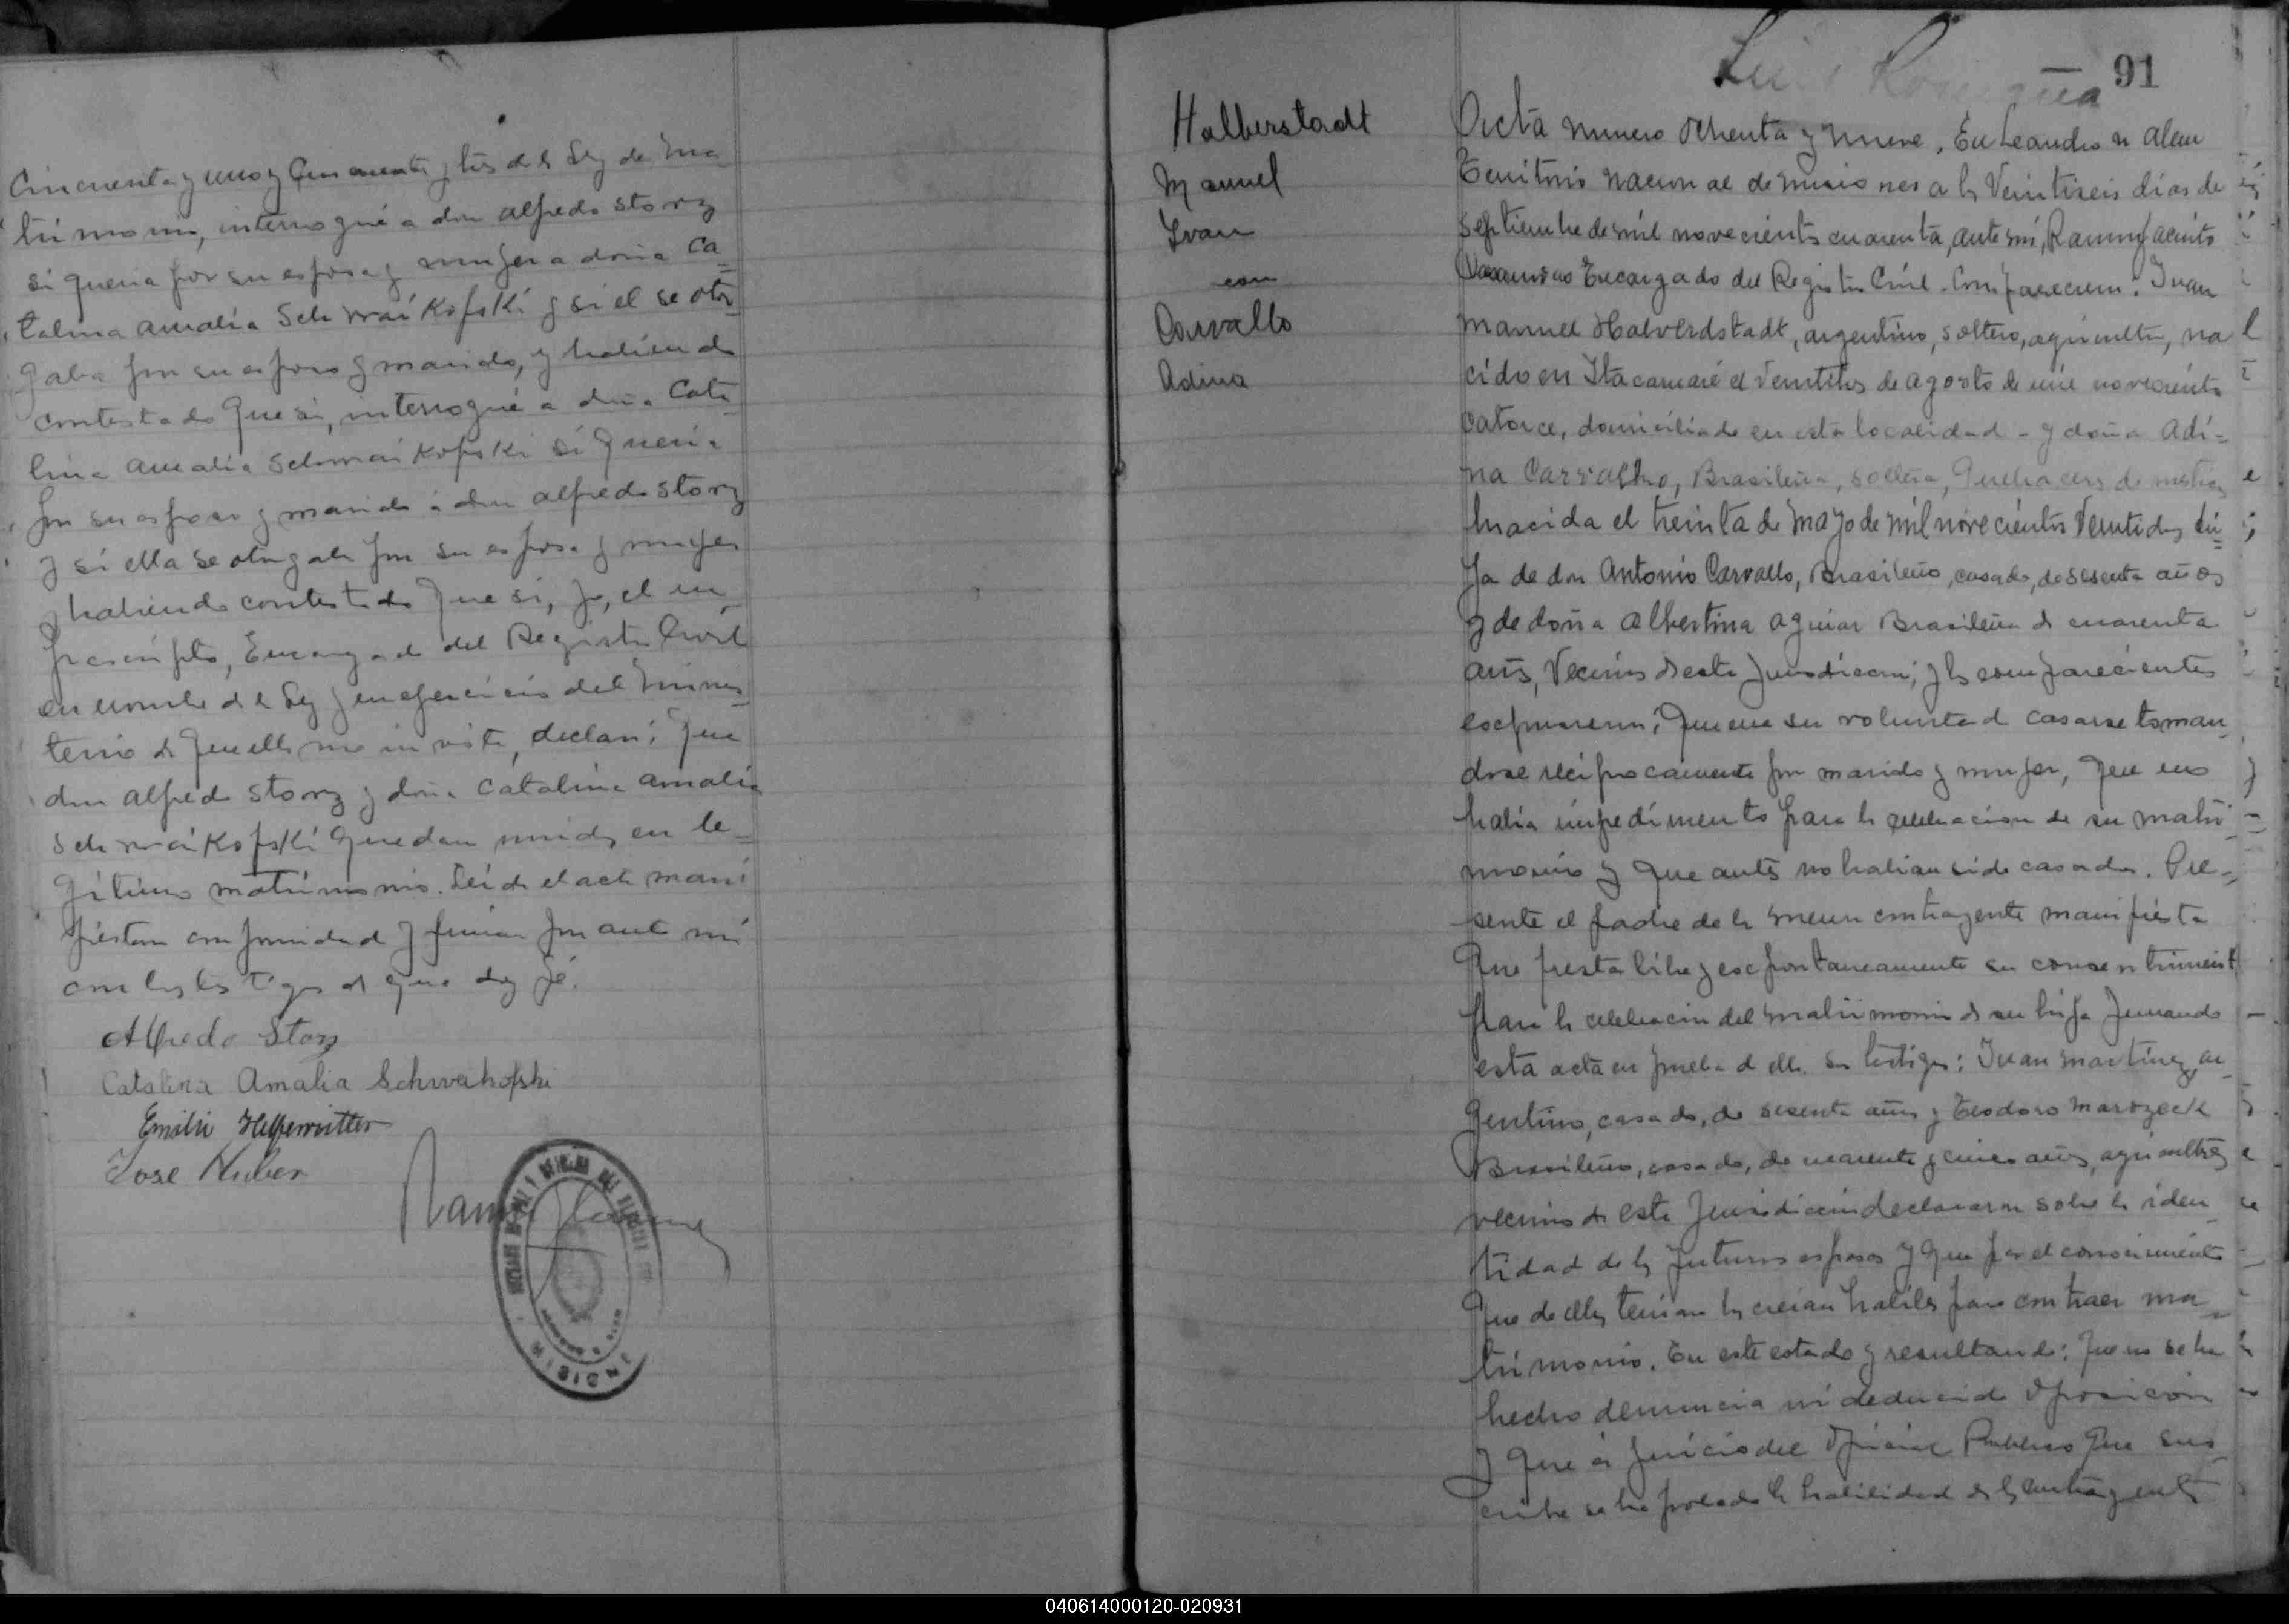 Cincuenta y uno y Cincuenta y tres de la Ley de Ma
trimonio, interrogué a don Alfredo Storz
si queria por su esposa y mujer a doña Ca
talina Amalia Schwaikofski y si el se otor
gaba por su esposo y marido, y habiendo
contestado que si, interrogué a doña Cata
lina Amalia Schwaikofski si queria
por su esposo y marido a don Alfredo Storz
y si ella se otorgaba por su esposa y mujer
y habiendo contestado que si, yo, el in
frascripto, Encargado del Registro Civil
en nombre de la Ley y en ejercicio del minis
terio de que ella me inviste, declaré; Que
don Alfredo Storz y doña Catalina Amalia
Schwaikofski quedan unidos en le=
gitimo matrimonio. Leida el acta mani
fiestan conformidad y firman por ante mi
con los testigos de que doy fé.
Alfredo Storz
Catalina Amalia Schwaikofski
Emilio
José Huber
Halberstadt
Manuel
Ivan
con
Carvallo
Adina
91
Acta numero Ochenta y nueve, En Leandro N Alem
Territorio nacional de misiones a los Veintiseis dias de
septiembre de mil novecientos cuarenta, ante mi, Ramon Jacinto
Encargado del Registro Civil - Comparecieron: Ivan
Manuel Halverdstadt, argentino, soltero, agricultor, na
cido en Itacaruaré el Veintitres de agosto de mil novecientos
catorce, domiciliado en esta localidad - y doña Adi=
na Carvalho, Brasileña, soltera, Quehaceres domesticos
nacida el treinta de mayo de mil novecientos Veintidos hi=
ja de don Antonio Carvallo, Brasileño, casado, de sesenta años
y de doña Albertina Aguiar Brasileña de cuarenta
años, Vecinos de esta Jurisdiccion; y los comparecientes
expusieron; Que era su voluntad casarse toman
dose reciprocamente por marido y mujer, que no
habia impedimento para la celebracion de su matri
monio y que antes no habian sido casados. Pre=
sente el padre de la menor contrayente manifiesta
Que presta libre y expontaneamente su consentimient
para la celebracion del matrimonio de su hija firmando
esta acta en prueba de ello. Los testigos: Ivan Martinez, ar
gentino, casado, de sesenta años y Teodoro Marozeck
Brasileño, casado, de cuarenta y cinco años, agricultores
vecinos de esta Jurisdiccion declararon sobre la iden
tidad de los futuros esposos y que por el conocimiento
que de ellos tenian los creian habiles para contraer ma
trimonio. En este estado y resultando: Que no se ha
hecho denuncia ni deducido oposicion
y que a juicio del Oficial Publico que sus
cribe se ha probado la habilidad de los contrayentes
040614000120-020931